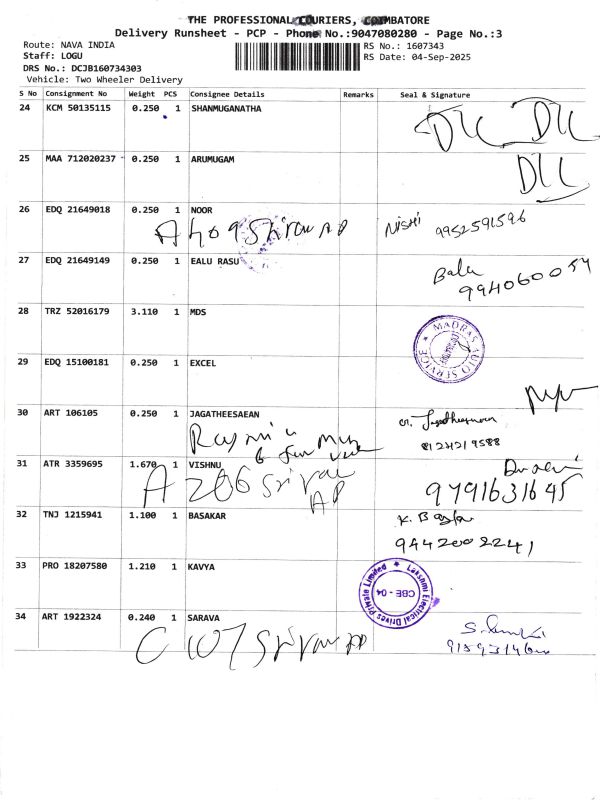 THE PROFESSIONAL COURIERS, COIMBATORE
Delivery Runsheet - PCP - Phone No.:9047080280 - Page No.:3
Route: NAVA INDIA
RS No.: 1607343
Staff: LOGU
RS Date: 04-Sep-2025
DRS No.: DCJB160734303
Vehicle: Two Wheeler Delivery
S No Consignment No Weight PCS Consignee Details Remarks Seal & Signature
24 KCM 50135115 0.250 1 SHANMUGANATHA
25 MAA 712020237 0.250 1 ARUMUGAM
26 EDQ 21649018 0.250 1 NOOR
NISHI 9952591596
27 EDQ 21649149 0.250 1 EALU RASU
Balu
9940600054
28 TRZ 52016179 3.110 1 MDS
MADRAS AUTO SERVICE
29 EDQ 15100181 0.250 1 EXCEL
30 ART 106105 0.250 1 JAGATHEESAEAN
31 ATR 3359695 1.670 1 VISHNU
A 206
9791631645
32 TNJ 1215941 1.100 1 BASAKAR
9442002241
33 PRO 18207580 1.210 1 KAVYA
Lakshmi Electrical Drives Private Limited
CBE - 04
34 ART 1922324 0.240 1 SARAVA